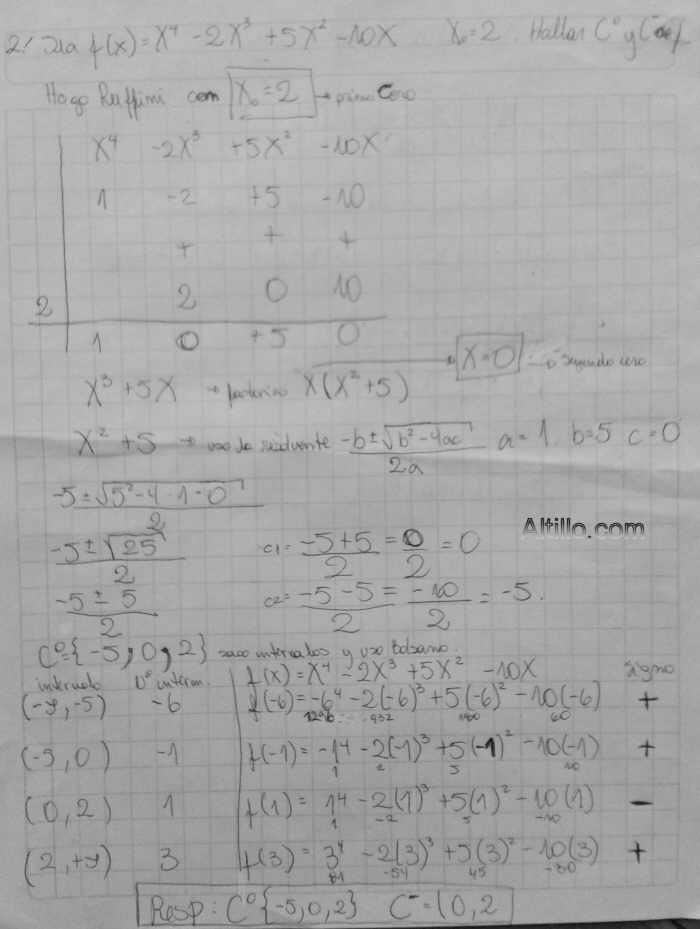 2. Sea f(x)=X⁴ -2X³ +5X² -10X X₀=2. Hallar C⁰ y C⁻ de f.
Hago Ruffini con X₀=2 → primer Cero
X⁴ -2X³ +5X² -10X
1 -2 +5 -10
+ + +
2 2 0 10
1 0 +5 0
X³+5X → factorizo X(X²+5) → X=0 → segundo cero
X²+5 → uso la resolvente -b±√b²-4ac / 2a a=1 b=5 c=0
-5±√5²-4·1·0 / 2
-5±√25 / 2 c1= -5+5 / 2 = 0 / 2 = 0
-5±5 / 2 c2= -5-5 / 2 = -10 / 2 = -5.
C⁰={-5,0,2} saco intervalos y uso Bolzano.
intervalo Nº interm. f(x)=X⁴ -2X³ +5X² -10X signo
(-∞,-5) -6 f(-6)=-6⁴ -2(-6)³ +5(-6)² -10(-6) +
1296 432 180 60
(-5,0) -1 f(-1)=-1⁴ -2(-1)³ +5(-1)² -10(-1) +
1 2 5 10
(0,2) 1 f(1)=1⁴ -2(1)³ +5(1)² -10(1) -
1 -2 5 -10
(2,+∞) 3 f(3)=3⁴ -2(3)³ +5(3)² -10(3) +
81 -54 45 -30
Resp: C⁰{-5,0,2} C⁻=(0,2
Altillo.com